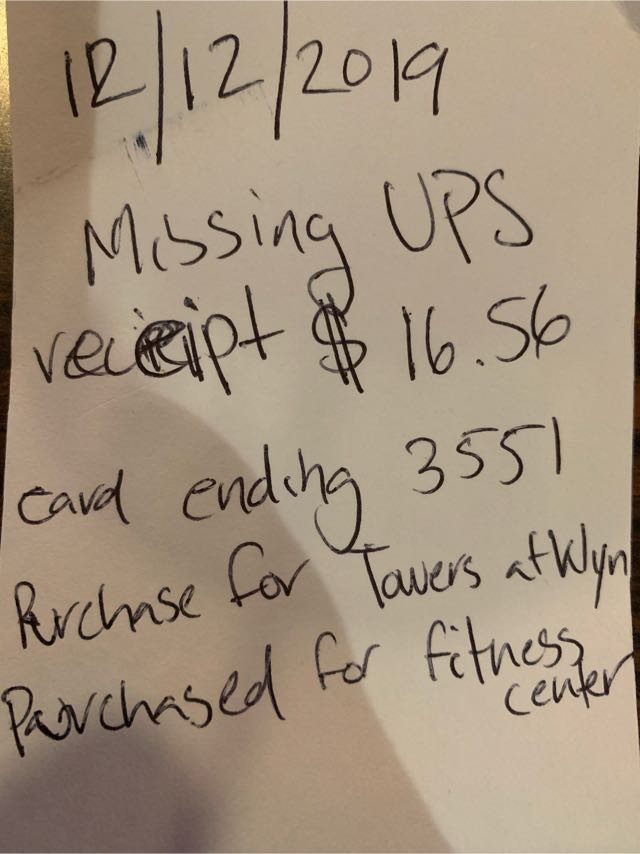 12/12/2019
Missing UPS
receipt $ 16.56
card ending 3551
Purchase for Towers at Wyn
Purchased for fitness
center